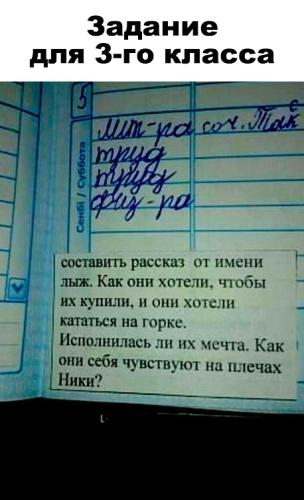 Задание
для 3-го класса
5
Сенбі / Суббота
лит-ра соч. Так
с
труд
труд
физ-ра
составить рассказ от имени
лыж. Как они хотели, чтобы
их купили, и они хотели
кататься на горке.
Исполнилась ли их мечта. Как
они себя чувствуют на плечах
Ники?